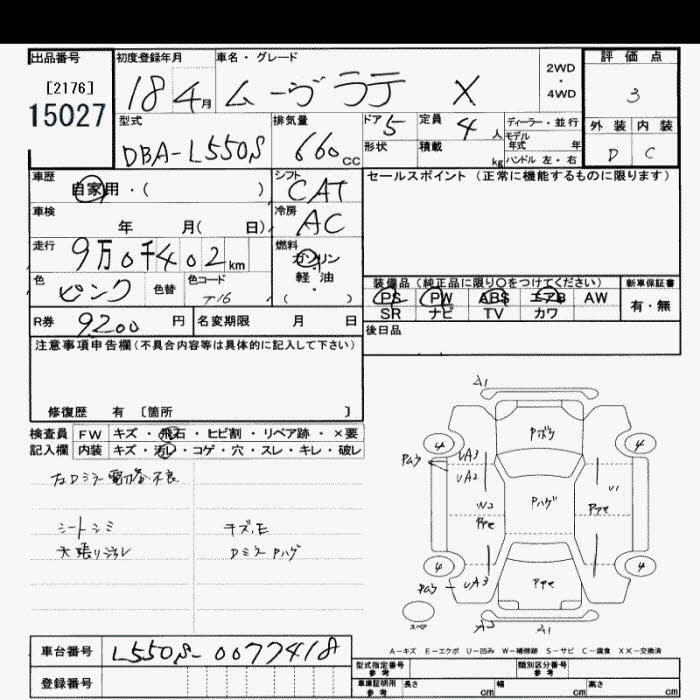 出品番号
[2176]
15027
初度登録年月
18 4月
車名・グレード
ムーヴ ラテ X
2WD
・
4WD
評価点
3
外装 内装
D C
型式
DBA-L550S
排気量
660 cc
ドア 5
形状
定員 4 人
積載 kg
ディーラー・並行
モデル
年式 年
ハンドル 左・右
車歴
自家用・( )
シフト
CAT
セールスポイント (正常に機能するものに限ります)
車検
年 月( 日)
冷房
AC
走行
9万0千402km
燃料
ガソリン
軽油
・
( )
色
ピンク
色替
色コード
T16
装備品 (純正品に限り○をつけてください)
PS PW ABS エアB AW
SR ナビ TV カワ
新車保証書
有・無
R券
9200円
名変期限 月 日
後日品
注意事項申告欄 (不具合内容等は具体的に記入して下さい)
修復歴 有 〔箇所 〕
検査員
記入欄
FW キズ・飛石・ヒビ割・リペア跡・×要
内装 キズ・汚レ・コゲ・穴・スレ・キレ・破レ
左Dミラー電格不良
シートシミ
天張りヨゴレ
キズ、E
Dミラー Pハゲ
A1
Pボケ
4
4
UA3
UA2
W2
U1
Pハゲ
4
4
UA3
スペア
A2
A1
A-キズ E-エクボ U-凹み W-補修跡 S-サビ C-腐食 XX-交換済
車台番号
L550S-0077418
登録番号
型式指定番号
参考
類別区分番号
参考
車庫証明用
参考
長さ cm
幅 cm
高さ cm